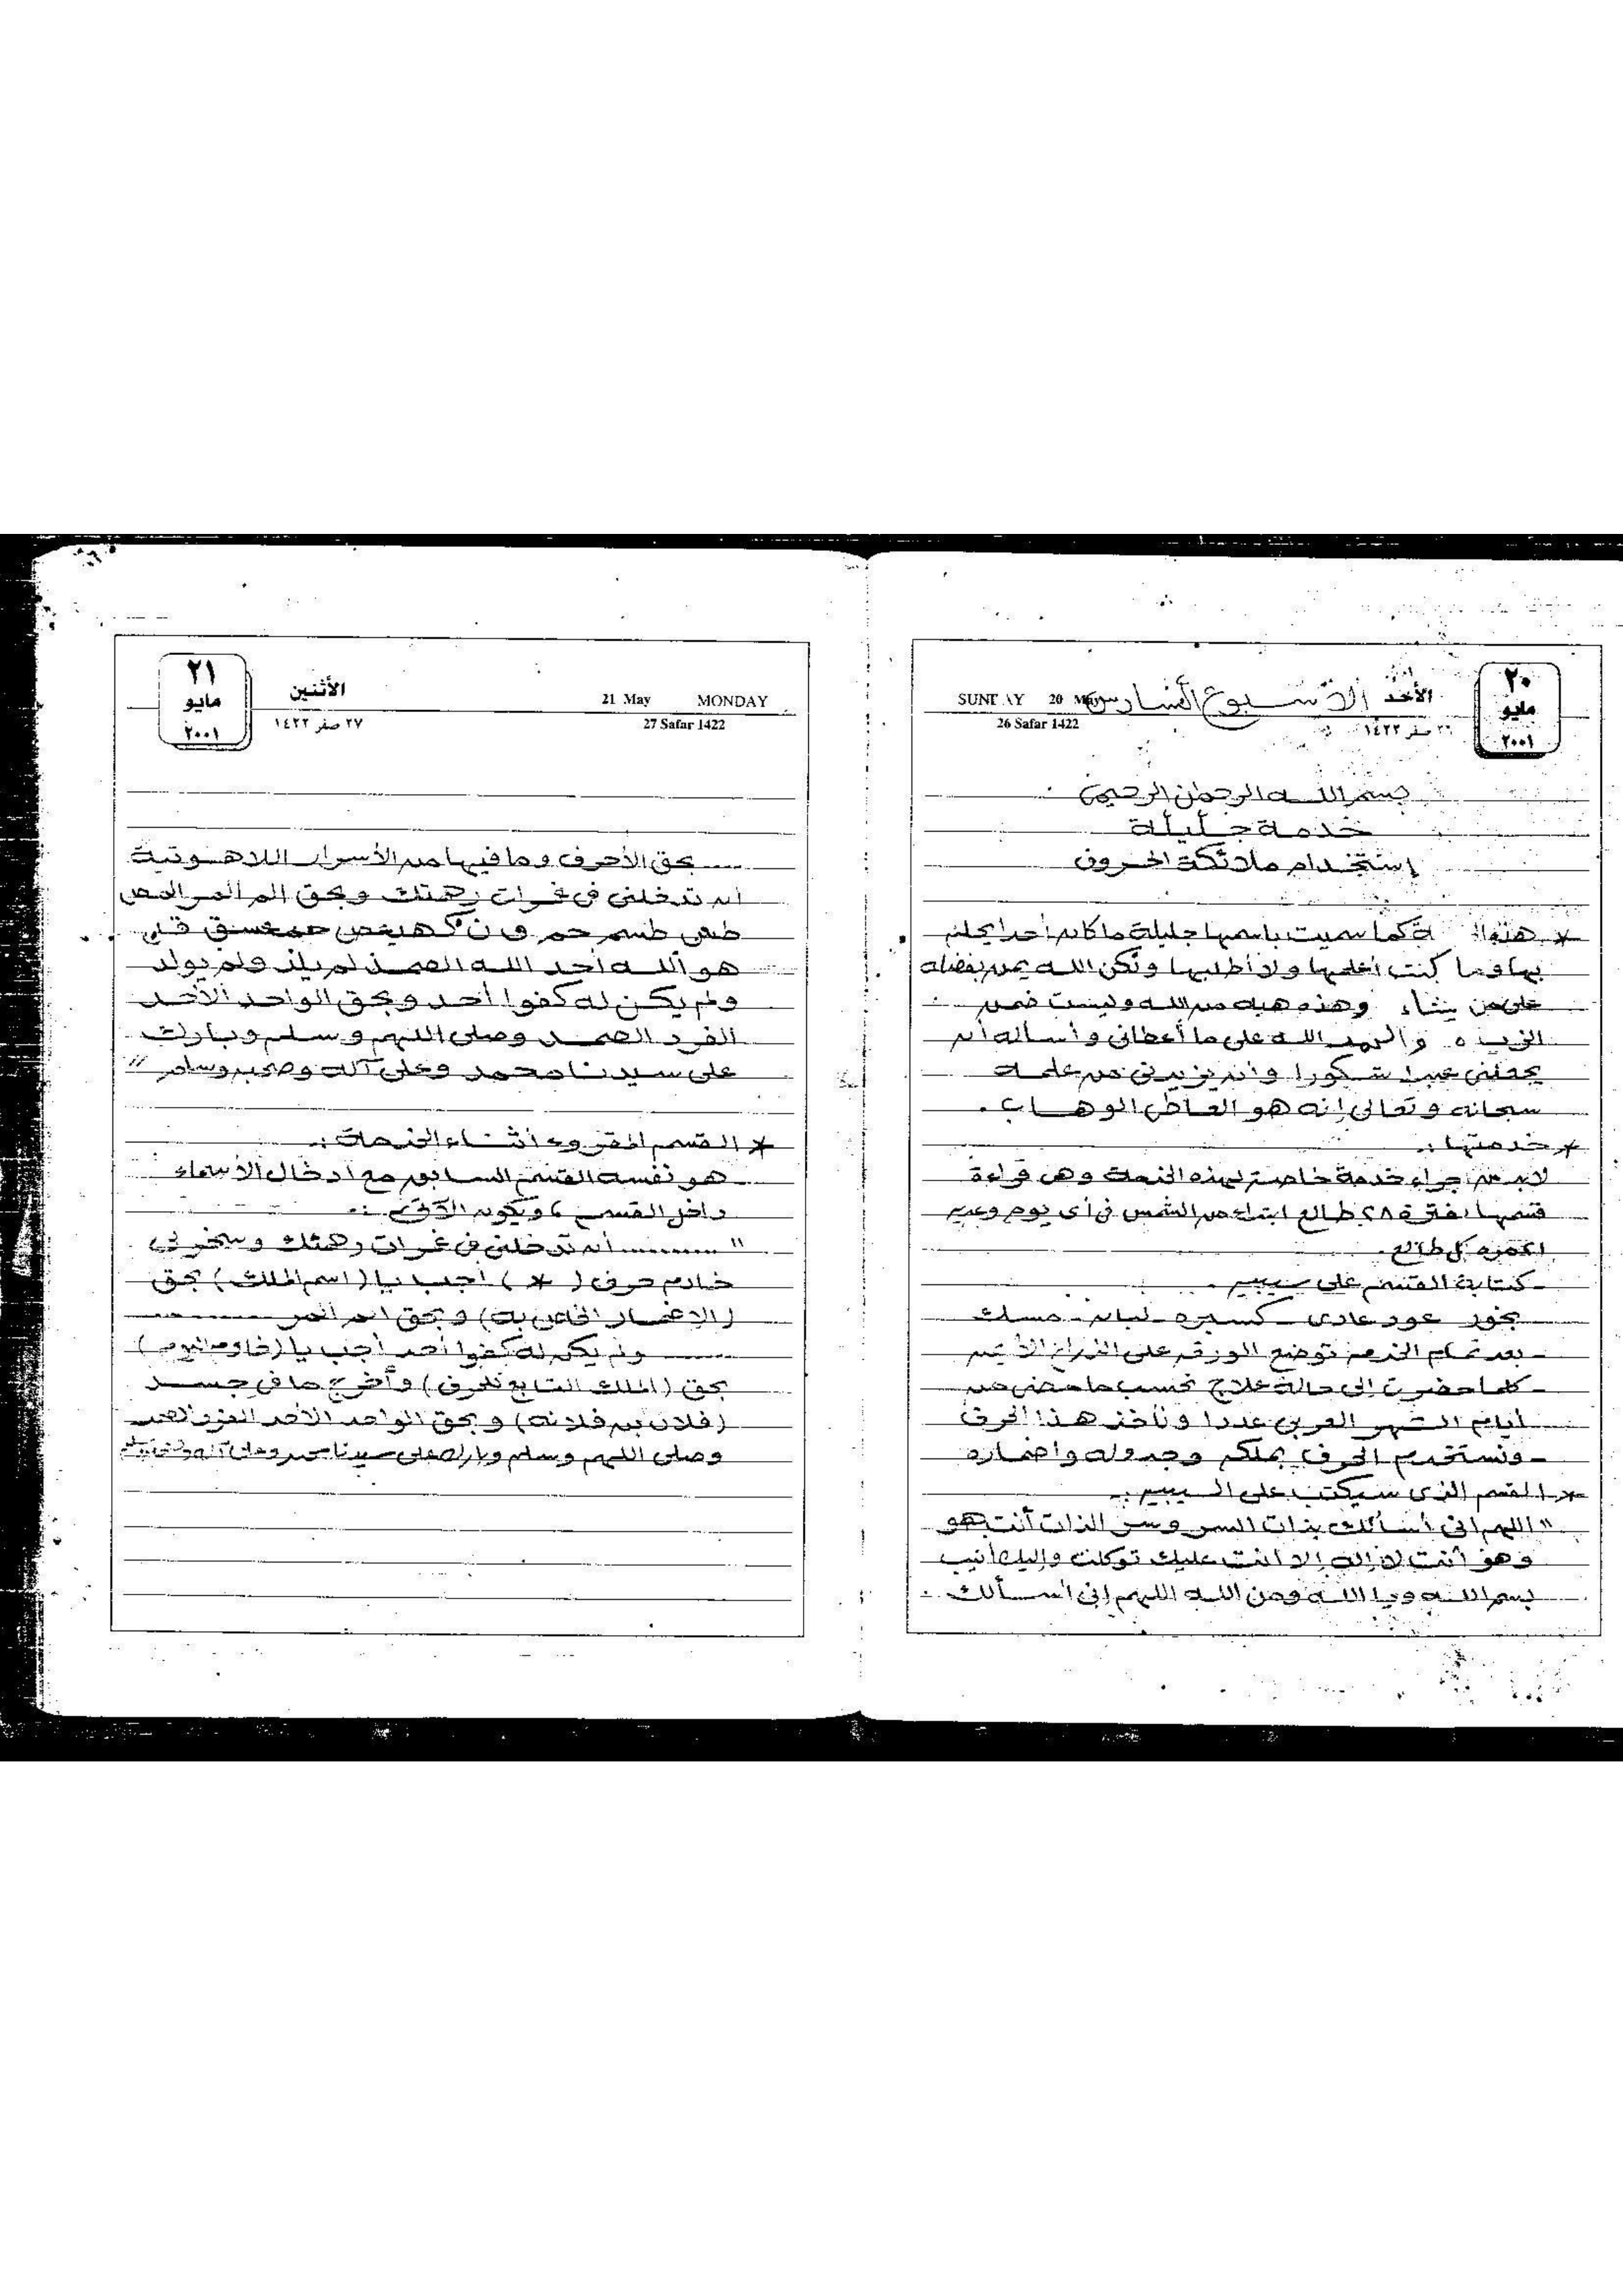 ٢٠
مايو
٢٠٠١
الأحد
SUNDAY 20 May
الأسبوع السادس
٢٦ صفر ١٤٢٢
26 Safar 1422
بسم الله الرحمن الرحيم
خدمة جليلة
إستخدام ملائكة الحروف
* هذه كما سميت باسمها جليلة ما كان أحدا يحلم
بها وما كنت أعلمها ولا أطلبها ولكن الله يمن بفضله
على من يشاء وهذه هبه من الله وليست ضمن
والحمد الله على ما أعطانى وأسأله أن
يجعلنى عبدا شكورا وأن يزيدنى من علمه
سبحانه وتعالى إنه هو العاطى الوهاب .
* خدمتها :-
لابد من إجراء خدمة خاصة لهذه الخدمة وهى قراءة
قسمها لفترة ٢٨ طالع ابتداء من الشمس فى أى يوم
كل طالع .
- كتابة القسم على سيبير .
بخور عود عادى - كسبره - لبان - مسك
- بعد تمام الخدمة توضع الورقة على الذراع الأيمن
- كلما حضرت إلى حالة علاج نحسب ما مضى من
أيام الشهر العربى عددا ونأخذ هذا الحرف
- ونستخدم الحرف بملكه وجدوله واضماره
* القسم الذى سيكتب على السيبير :-
" اللهم انى أسألك بذات السر وسر الذات أنت هو
وهو أنت لا إله إلا أنت عليك توكلت وإليك أنيب
بسم الله وبا الله ومن الله اللهم إنى أسألك .
٢١
مايو
٢٠٠١
الأثنين
21 May MONDAY
٢٧ صفر ١٤٢٢
27 Safar 1422
..... بحق الأحرف وما فيها من الأسرار اللاهوتية
أن تدخلنى فى غمرات رحمتك وبحق الم المر المص
طس طسم حم ق ن كهيعص حمعسق قل
هو الله أحد الله الصمد لم يلد ولم يولد
ولم يكن له كفوا أحد وبحق الواحد الأحد
الفرد الصمد وصلى اللهم وسلم وبارك
على سيدنا محمد وعلى آله وصحبه وسلم "
* القسم المقروء أثناء الخدمة :-
هو نفسه القسم السابق مع ادخال الأسماء
داخل القسم ، ويكون الآتى :-
" .......... أن تدخلنى فى غمرات رحمتك وسخر لى
خادم حرف ( * ) أجب يا (اسم الملك) بحق
(الاضمار الخاص به) وبحق الم المر ........
....... ولم يكن له كفوا أحد أجب يا (خادم اليوم)
بحق (الملك التابع للحرف) وأخرج ما فى جسد
(فلان بن فلانة) وبحق الواحد الأحد الفرد الصمد
وصلى اللهم وسلم وبارك على سيدنا محمد وعلى آله